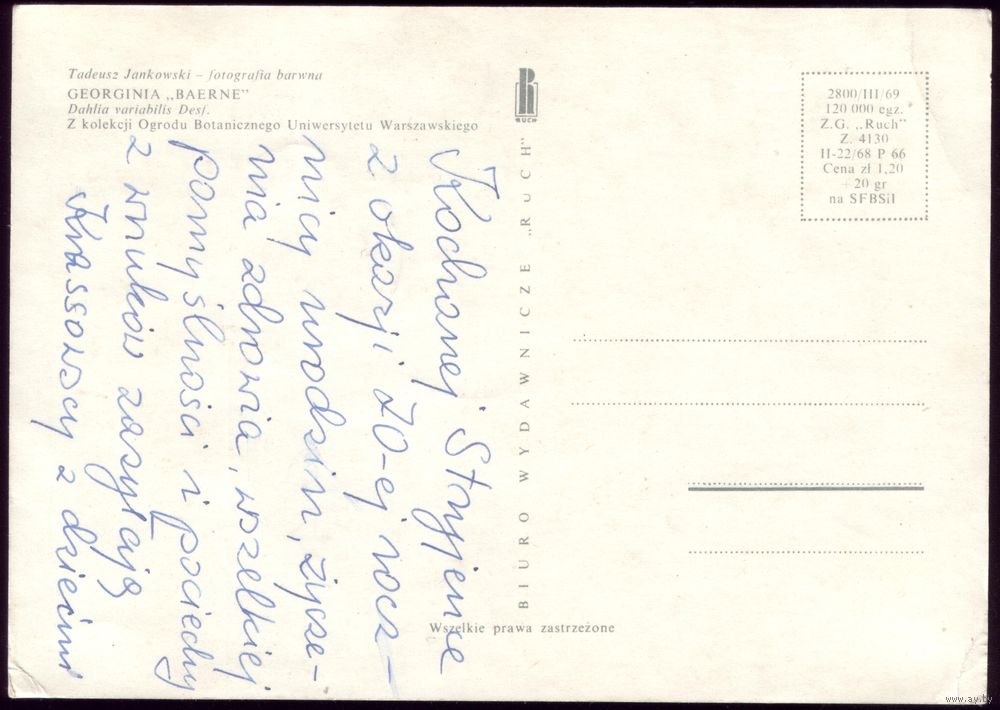 Tadeusz Jankowski – fotografia barwna
GEORGINIA „BAERNE”
Dahlia variabilis Desf.
Z kolekcji Ogrodu Botanicznego Uniwersytetu Warszawskiego
Kochanej Stryjence
z okazji 70-ej rocz-
nicy urodzin, życze-
nia zdrowia, wszelkiej
pomyślności i pociechy
z wnuków zasyłają
Krassowscy z dziećmi
R
RUCH
BIURO WYDAWNICZE „RUCH”
2800/III/69
120 000 egz.
Z.G. „Ruch”
Z. 4130
II-22/68 P 66
Cena zł 1,20
+ 20 gr
na SFBSiI
Wszelkie prawa zastrzeżone
www.ay.by